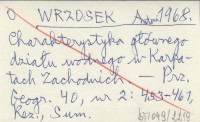 O WRZOSEK Antoni 1968.
Charakterystyka głównego
działu wodnego w Karpa-
tach Zachodnich. — Prz.
Geogr. 40, nr 2: 453-461,
Rez., Sum.